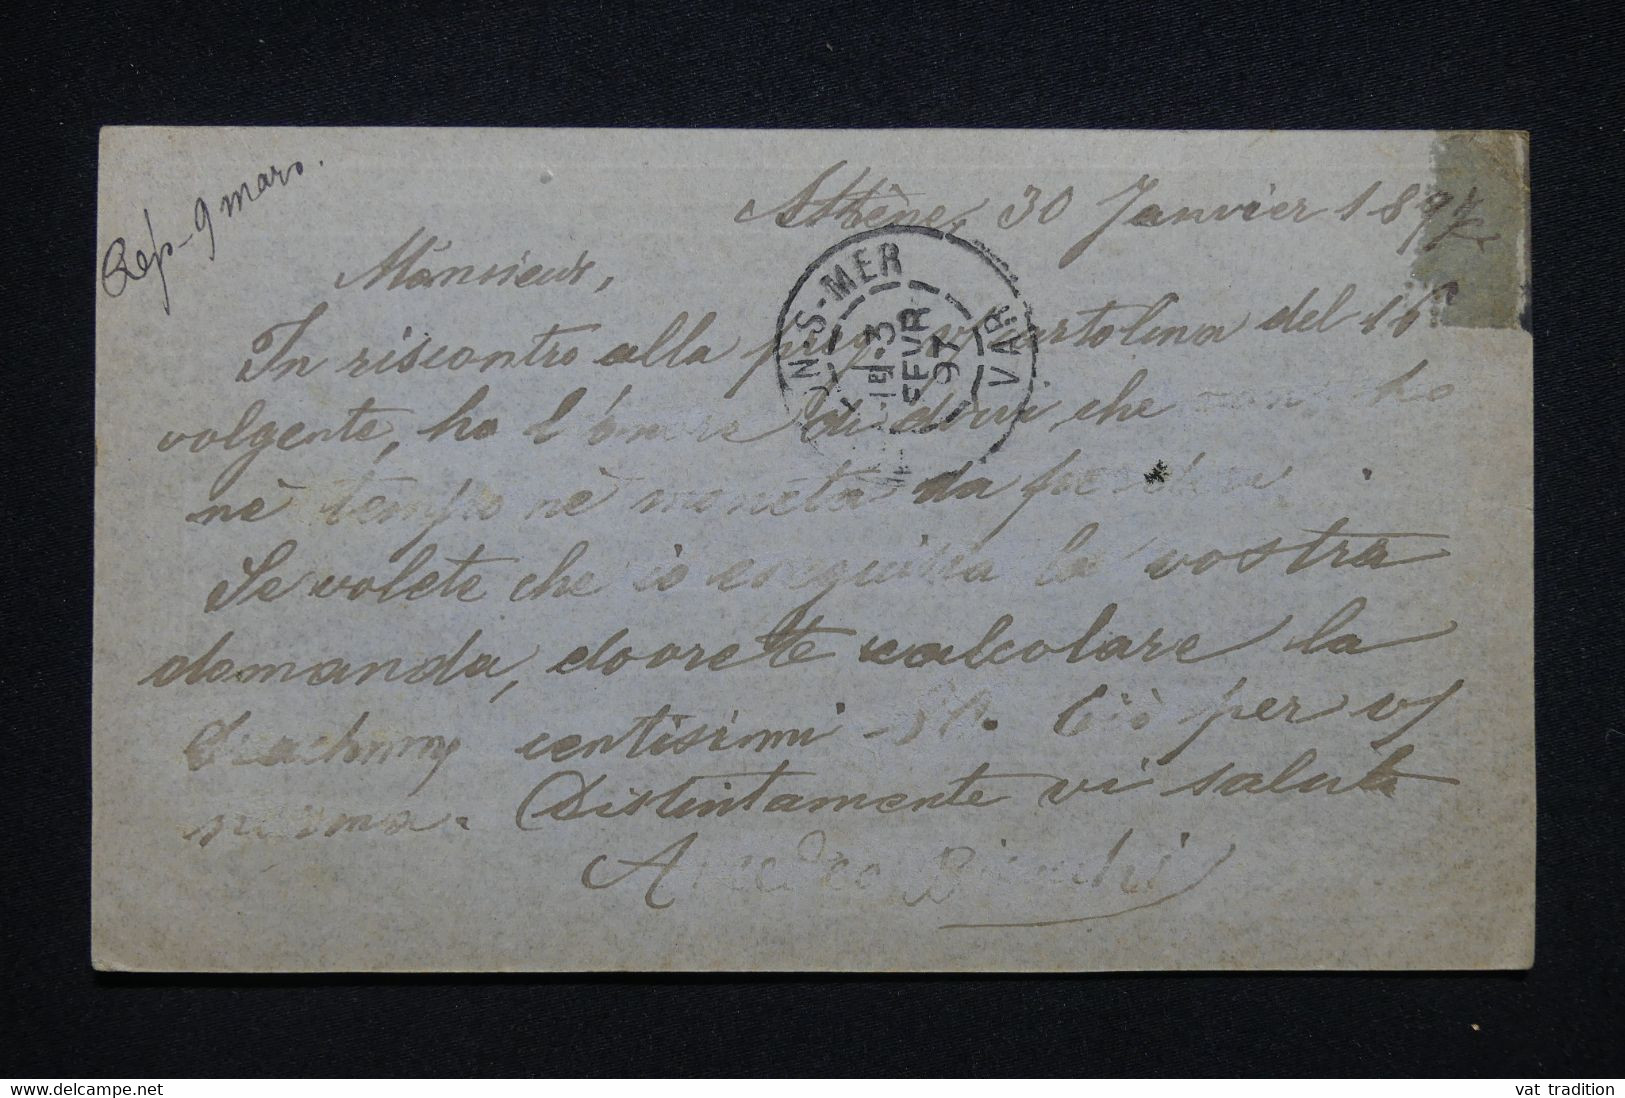 Rép- 9 mars.
Athènes, 30 Janvier 1897
Monsieur,
In riscontro alla cartolina del 16
volgente, ho l'onore di dirvi che non ho
nè tempo nè moneta da perdere.
Se volete che io eseguisca la vostra
domanda, dovrete calcolare la
Drachma centesimi Ciò per vs
norma. Distintamente vi saluta
Amedeo Bianchi
S-MER
3
FEVR
97
VAR
vat tradition